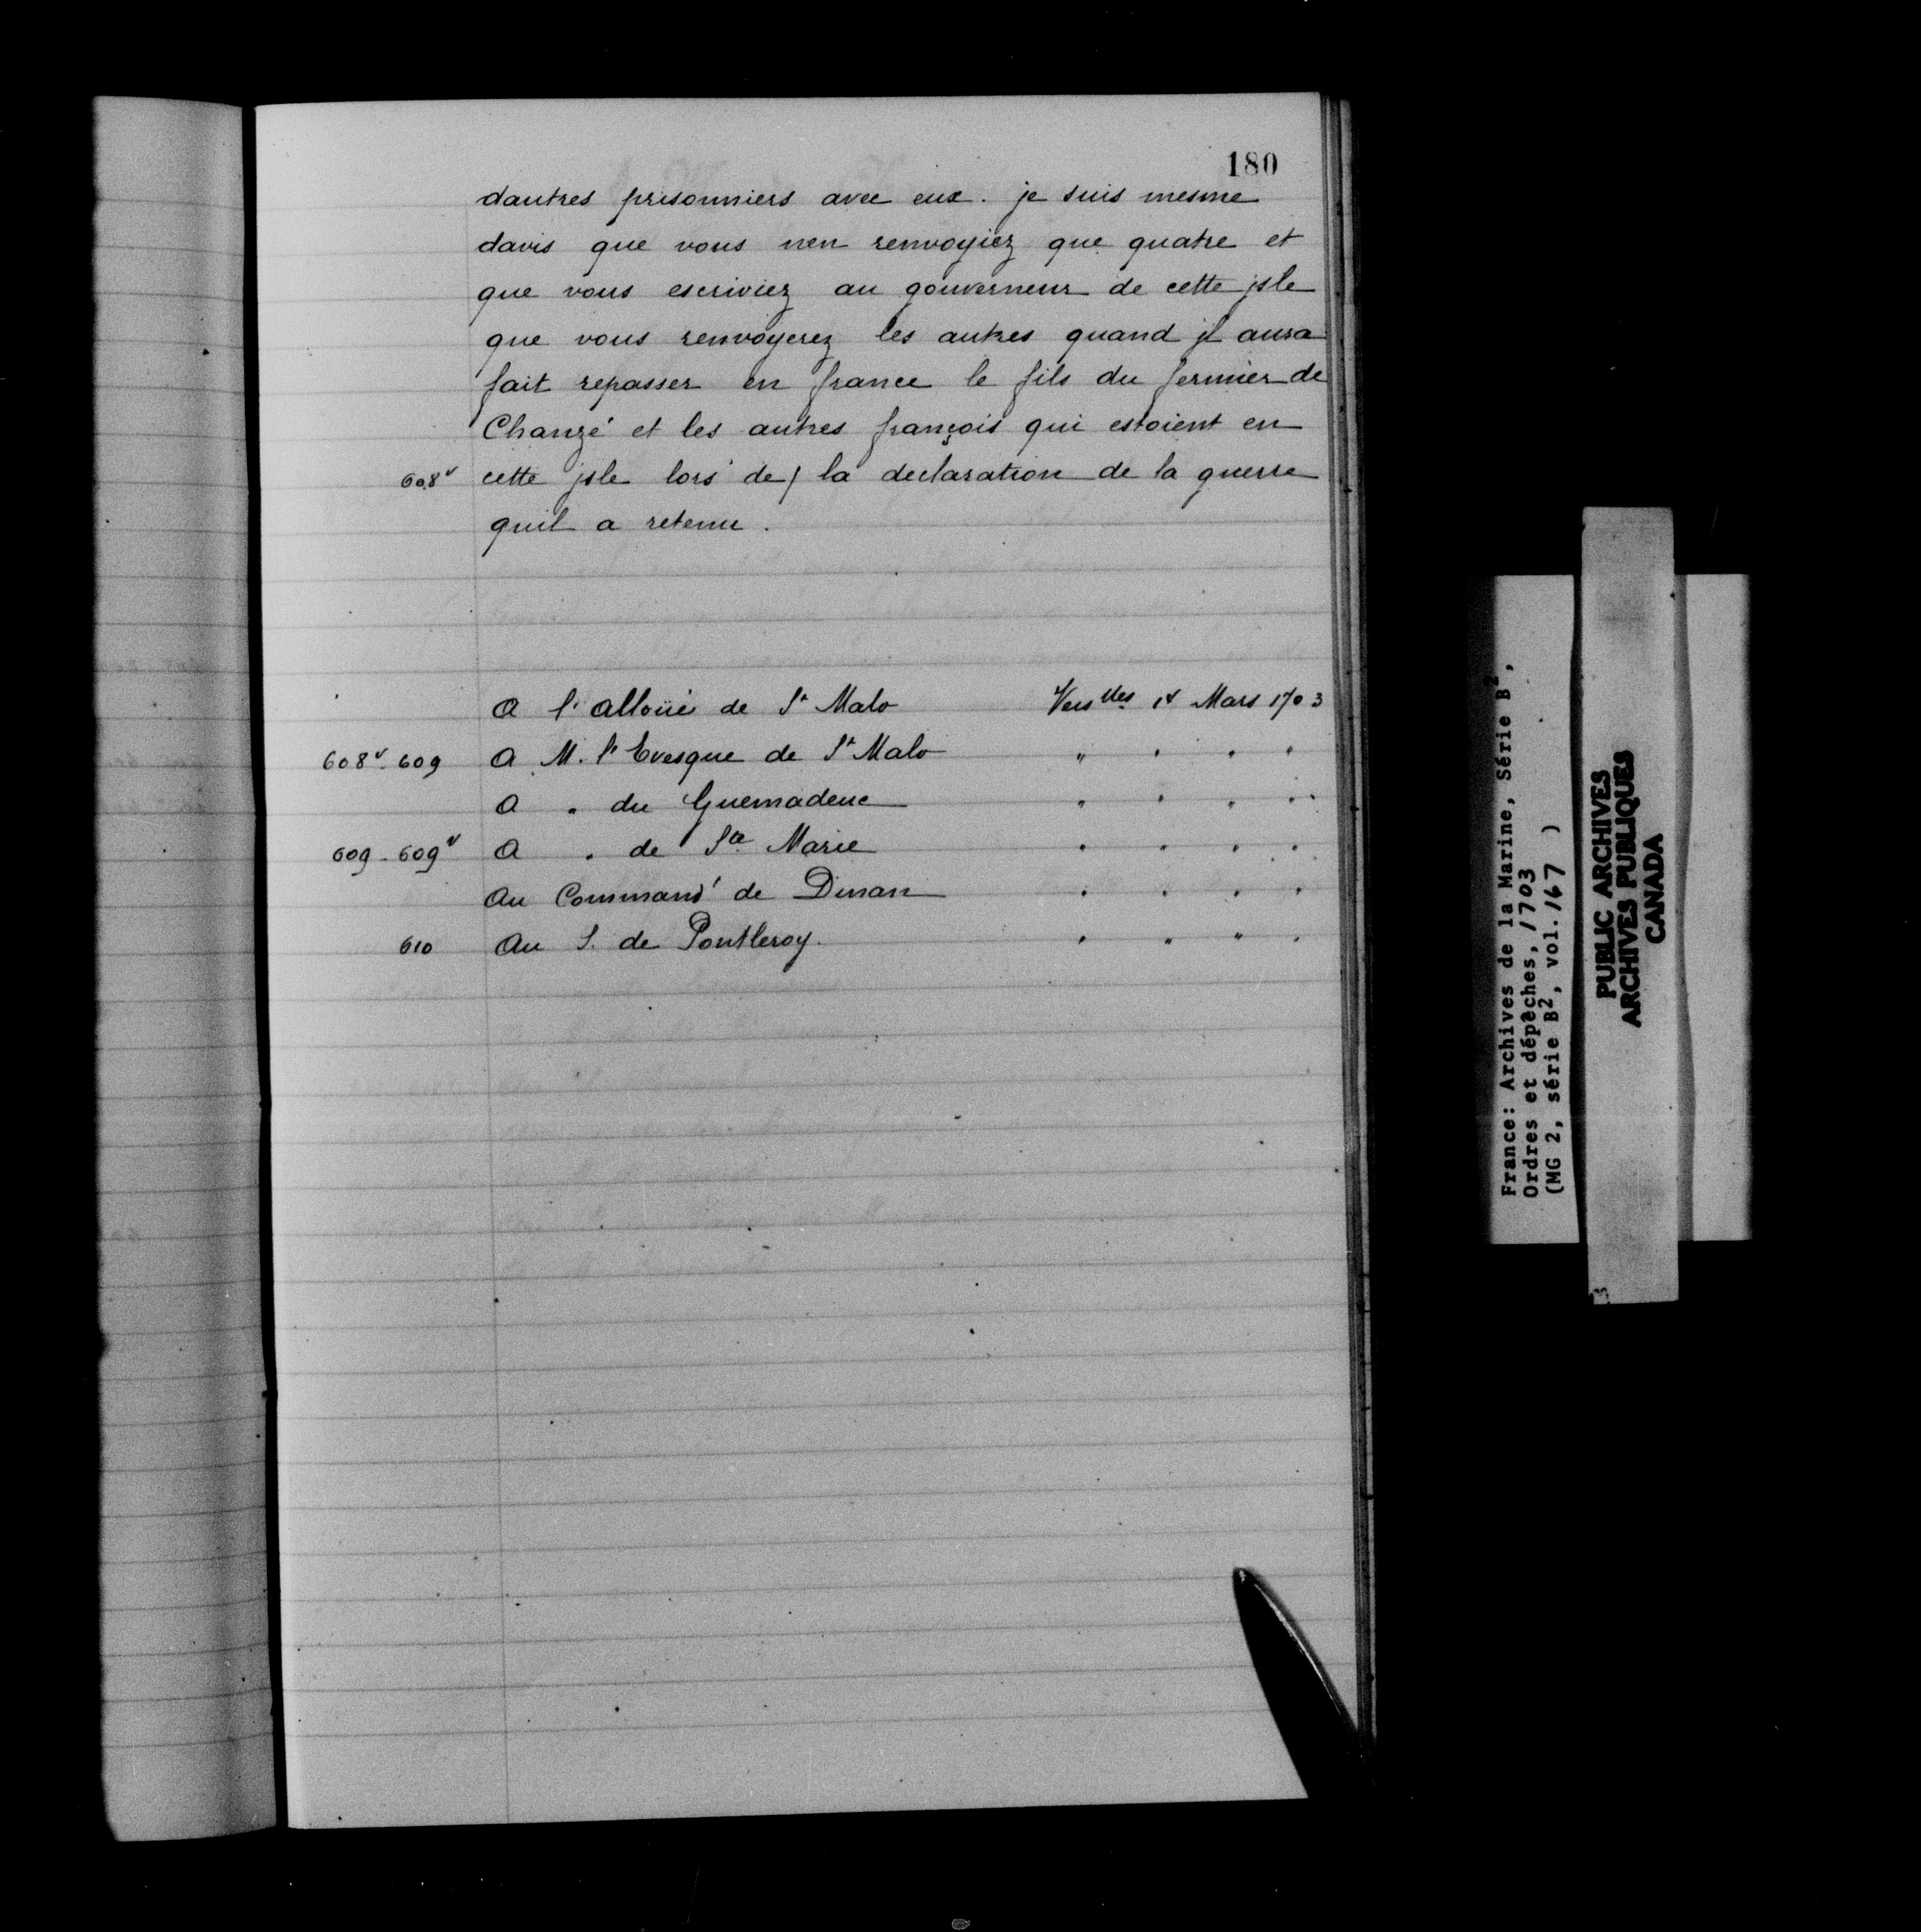 180
dautres prisonniers avec eux. je suis mesme
davis que vous nen renvoyiez que quatre et
que vous escriviez au gouverneur de cette jsle
que vous renvoyerez les autres quand jl aura
fait repasser en france le fils du fermier de
Chanzé et les autres françois qui estoient en
608v cette jsle lors de / la declaration de la guerre
quil a retenu.
A l'alloüé de St Malo Verslles 14 Mars 1703
608v-609 A M. l'Evesque de St Malo " " " "
A " du Guemadeuc " " " "
609-609v A " de Ste Marie " " " "
Au Commandt de Dinan " " " "
610 Au S. de Pontleroy. " " " "
France: Archives de la Marine, Série B2,
Ordres et dépêches, 1703
(MG 2, série B2, vol. 167 )
PUBLIC ARCHIVES
ARCHIVES PUBLIQUES
CANADA